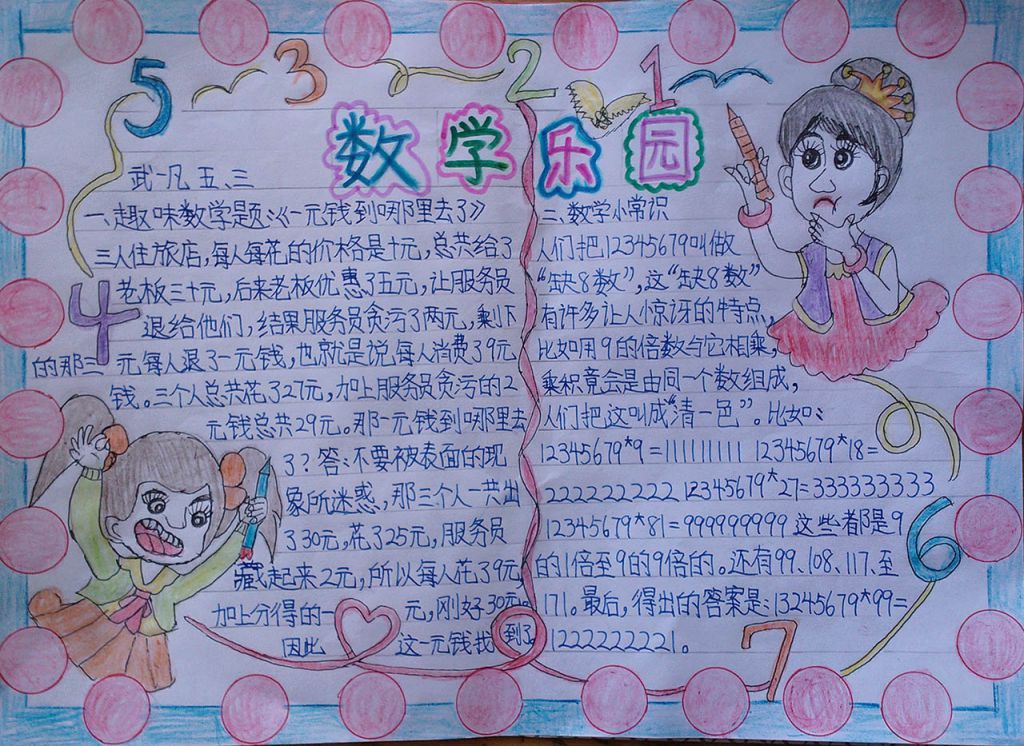 5 3 2 1
数学乐园
武一凡 五、三
一、趣味数学题:《一元钱到哪里去了》
三人住旅店,每人每花的价格是十元,总共给了
老板三十元,后来老板优惠了五元,让服务员
4
退给他们,结果服务员贪污了两元,剩下
的那三元每人退了一元钱,也就是说,每人消费了9元
钱。三个人总共花了27元,加上服务员贪污的2
元钱总共29元。那一元钱到哪里去
了?答:不要被表面的现
象所迷惑,那三个人一共出
了30元,花了25元,服务员
藏起来2元,所以每人花了9元,
加上分得的一元,刚好30元。
因此这一元钱找到了。
二、数学小常识
人们把12345679叫做
“缺8数”,这“缺8数”
有许多让人小京讶的特点,
比如用9的倍数与它相乘,
乘积竟会是由同一个数组成,
人们把这叫成“清一色”。比如:
12345679*9=111111111 12345679*18=
222222222 12345679*27=333333333
12345679*81=999999999 这些都是9
6
的1倍至9的9倍的。还有99、108、117、至
171。最后,得出的答案是:13245679*99=
1222222221。
7